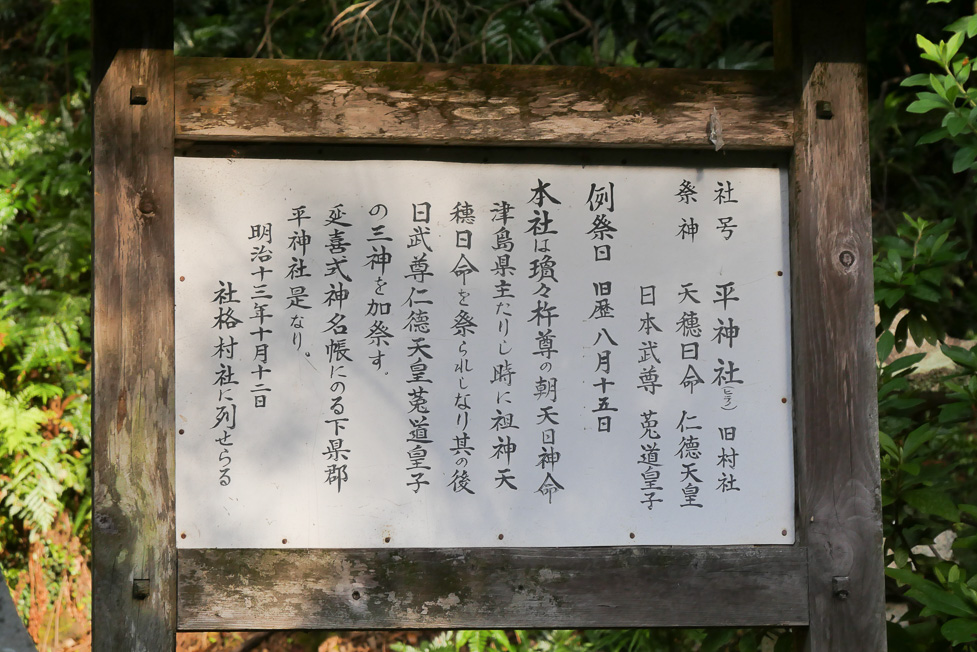 社号 平神社(ヒラ) 旧村社
祭神 天穗日命 仁徳天皇
日本武尊 莵道皇子
例祭日 旧歴 八月十五日
本社は瓊々杵尊の朝天日神命
津島県主たりし時に祖神天
穗日命を祭られしなり其の後
日武尊仁徳天皇莵道皇子
の三神を加祭す。
延喜式神名帳にのる下県郡
平神社是なり。
明治十三年十月十二日
社格村社に列せらる